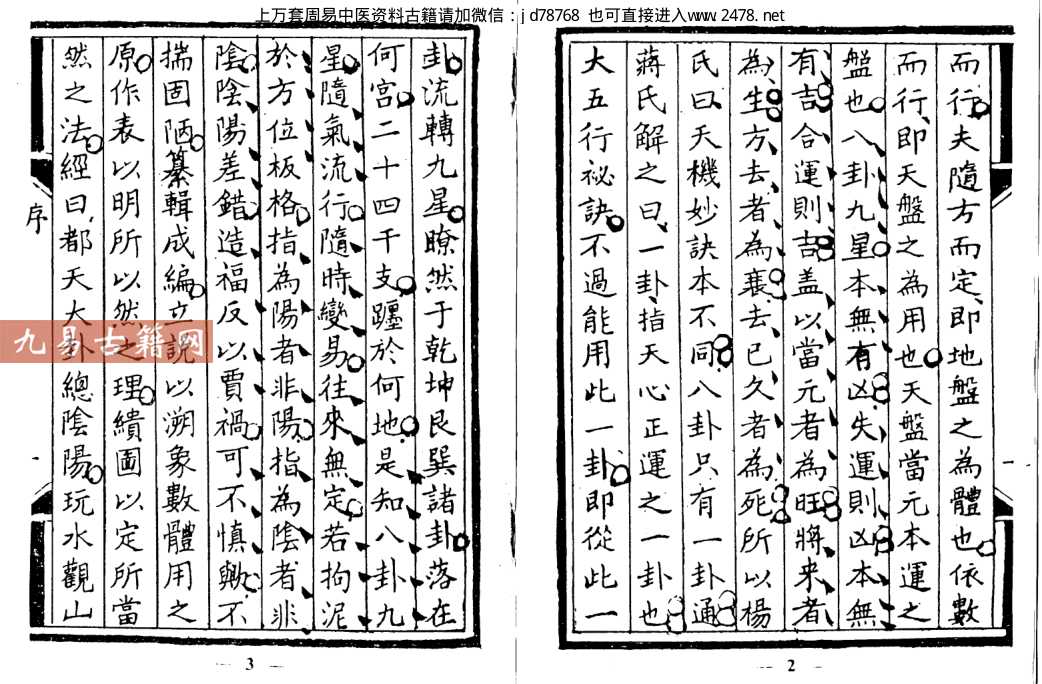 上万套周易中医资料古籍请加微信：jd78768 也可直接进入www.2478.net
而行夫隨方而定即地盤之為體也依數
而行即天盤之為用也天盤當元本運之
盤也八卦九星本無有凶失運則凶本無
有吉合運則吉盖以當元者為旺將來者
為生方去者為衰去已久者為死所以楊
氏曰天機妙訣本不同八卦只有一卦通
蔣氏解之曰一卦指天心正運之一卦也
大五行祕訣不過能用此一卦即從此一
2
卦流轉九星瞭然于乾坤艮巽諸卦落在
何宮二十四干支躔於何地是知八卦九
星隨氣流行隨時變易往來無定若拘泥
於方位板格指為陽者非陽指為陰者非
陰陰陽差錯造福反以賈禍可不慎歟不
揣固陋纂輯成編立說以溯象數體用之
原作表以明所以然之理繢圖以定所當
然之法經曰都天大卦總陰陽玩水觀山
序
3
九易古籍网